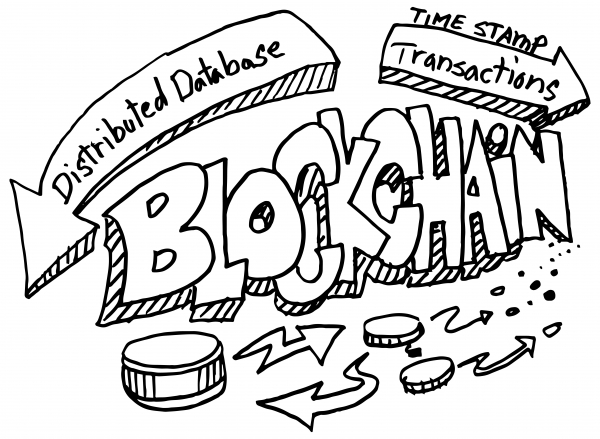 Distributed Database
TIME STAMP
Transactions
BLOCKCHAiN